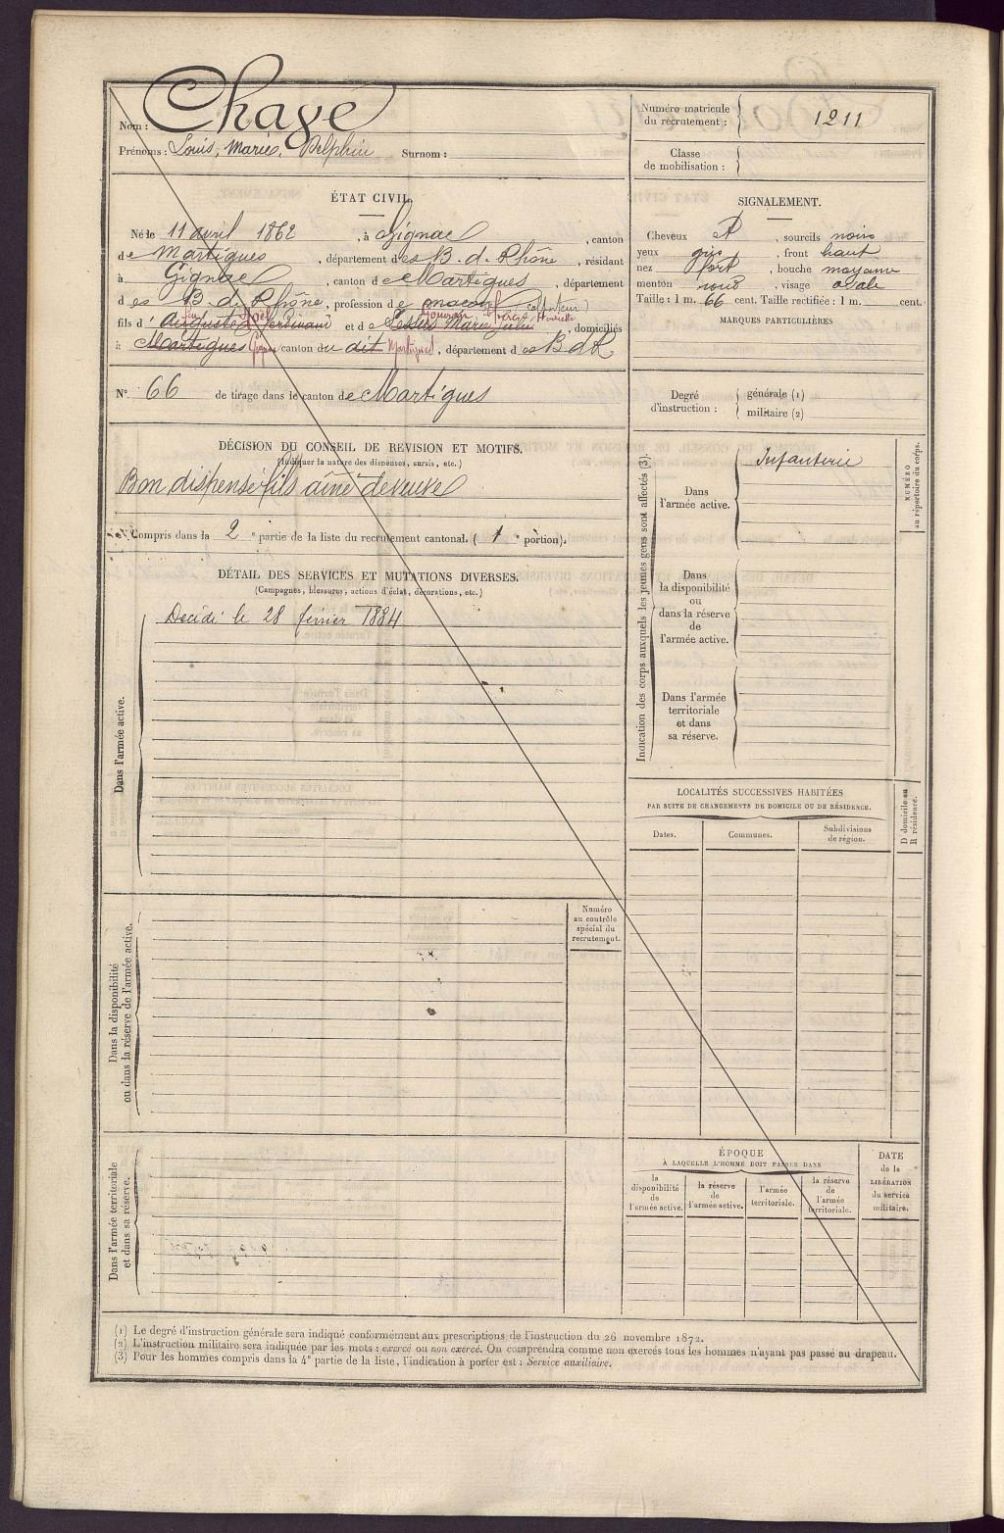 Nom : Chavé
Prénoms : Louis, Marie, Delphin Surnom :
Numéro matricule du recrutement : 1211
Classe de mobilisation :
ÉTAT CIVIL.
Né le 11 avril 1862, à Gignac, canton
de Martigues, département des B. d. Rhône, résidant
à Gignac, canton de Martigues, département
des B. du Rhône, profession de
fils d' Auguste Ferdinand et de Marie, domiciliés
à Martigues canton du dit Martigues, département des B d R
N° 66 de tirage dans le canton de Martigues
SIGNALEMENT.
Cheveux, sourcils noirs
yeux gris, front haut
nez fort, bouche moyenne
menton rond, visage ovale
Taille : 1 m. 66 cent. Taille rectifiée : 1 m. cent.
MARQUES PARTICULIÈRES
Degré d'instruction :
générale (1)
militaire (2)
DÉCISION DU CONSEIL DE REVISION ET MOTIFS.
(Indiquer la nature des dispenses, sursis, etc.)
Bon dispensé fils aîné de veuve
Compris dans la 2e partie de la liste du recrutement cantonal. ( 1e portion).
DÉTAIL DES SERVICES ET MUTATIONS DIVERSES.
(Campagnes, blessures, actions d'éclat, décorations, etc.)
Dans l'armée active.
Décédé le 28 février 1884
Indication des corps auxquels les jeunes gens sont affectés (3).
NUMÉRO au répertoire du corps.
Dans l'armée active.
Infanterie
Dans la disponibilité ou dans la réserve de l'armée active.
Dans l'armée territoriale et dans sa réserve.
LOCALITÉS SUCCESSIVES HABITÉES
PAR SUITE DE CHANGEMENTS DE DOMICILE OU DE RÉSIDENCE.
D domicile ou R résidence.
Dates.
Communes.
Subdivisions de région.
Numéro au contrôle spécial du recrutement.
Dans la disponibilité ou dans la réserve de l'armée active.
Dans l'armée territoriale et dans sa réserve.
ÉPOQUE
À LAQUELLE L'HOMME DOIT PASSER DANS
la disponibilité de l'armée active.
la réserve de l'armée active.
l'armée territoriale.
la réserve de l'armée territoriale.
DATE de la LIBÉRATION du service militaire.
(1) Le degré d'instruction générale sera indiqué conformément aux prescriptions de l'instruction du 26 novembre 1872.
(2) L'instruction militaire sera indiquée par les mots : exercé ou non exercé. On comprendra comme non exercés tous les hommes n'ayant pas passé au drapeau.
(3) Pour les hommes compris dans la 4e partie de la liste, l'indication à porter est : Service auxiliaire.